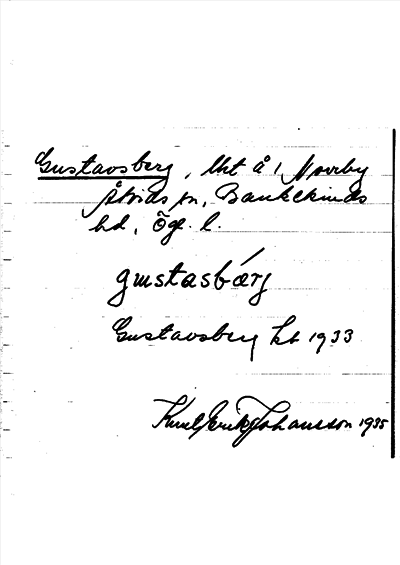 Gustavsberg, lht å 1 Norrby
Åtvids sn, Bankekinds
hd, Ög. l.
gustasbærg
Gustavsberg kb 1933
Karl Erik Johansson 1935